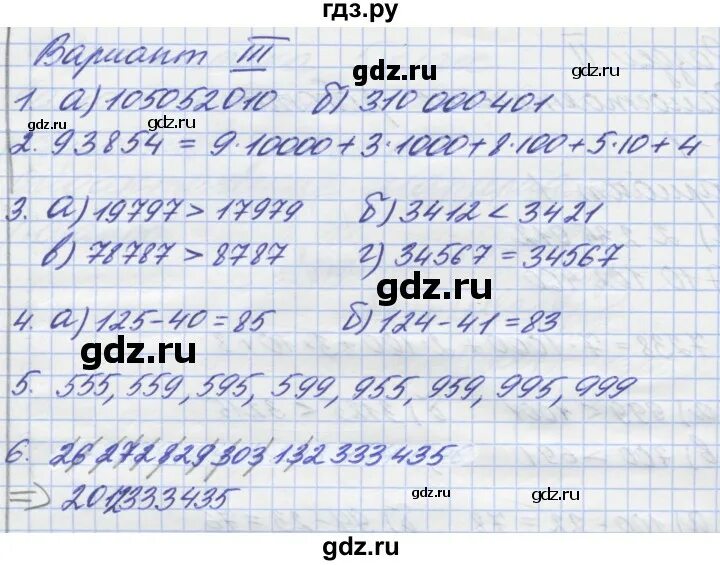 гдз.ру
Вариант III
gdz.ru
1. а) 105052010 б) 310 000 401
gdz.ru gdz.ru
2. 93854 = 9·10000+3·1000+8·100+5·10+4
3. а) 19797 > 17979 б) 3412 < 3421
в) 78787 > 8787 г) 34567 = 34567
gdz.ru
4. а) 125-40=85 б) 124-41=83
gdz.ru
5. 555, 559, 595, 599, 955, 959, 995, 999
6. 26272829303132333435
gdz.ru gdz.ru
=> 2012333435
gdz.ru